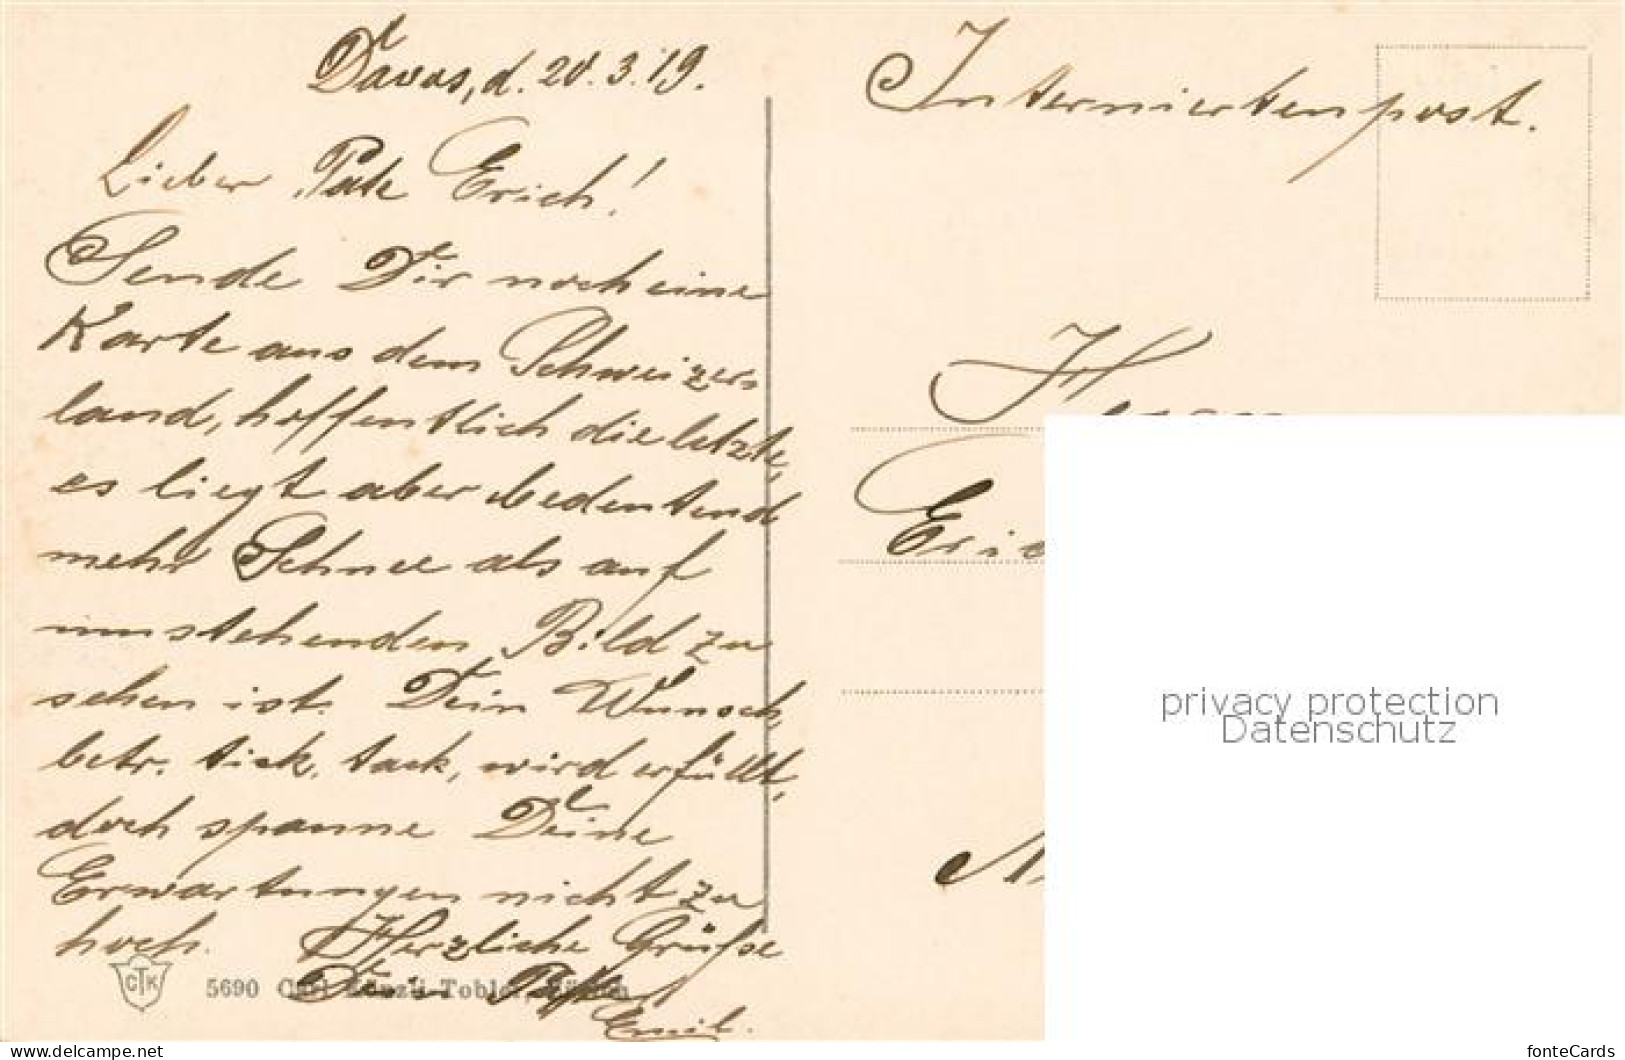 Davos, d. 20.3.19.
Lieber Pate Erich!
Sende Dir noch eine
Karte aus dem Schweizer-
land, hoffentlich die letzte,
es liegt aber bedeutend
mehr Schnee als auf
umstehenden Bild zu
sehen ist. Dein Wunsch
betr. tick, tack, wird erfüllt,
doch spanne Deine
Erwartungen nicht zu
hoch. Herzliche Grüße
Dein
Emil.
CTK
5690 Carl Künzli-Tobler, Zürich
Interniertenpost.
Herrn
Eric
privacy protection
Datenschutz
delcampe.net
fonteCards